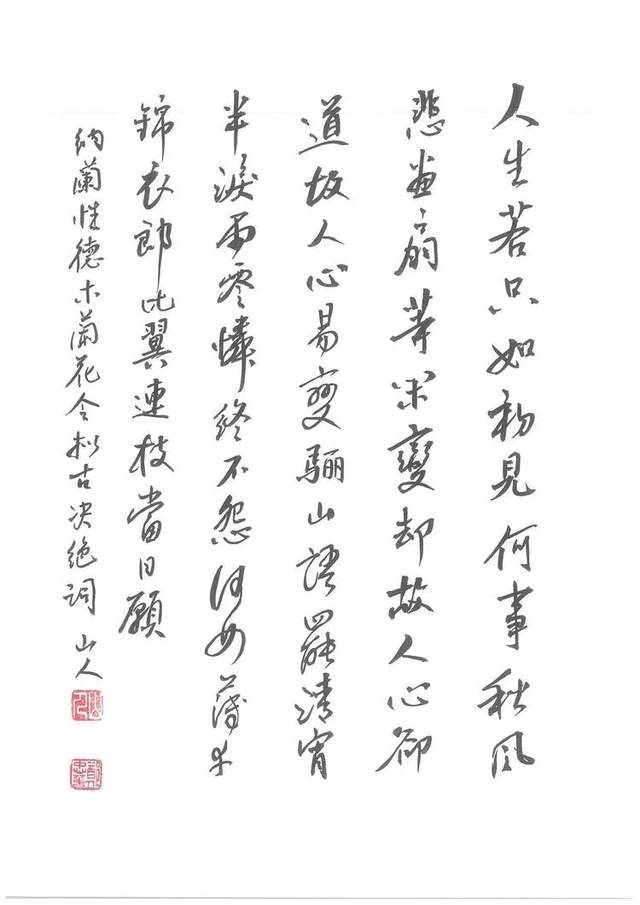 人生若只如初見何事秋风
悲畫扇等闲變却故人心卻
道故人心易變骊山語罷清宵
半淚雨零憐終不怨何如薄幸
錦衣郎比翼連枝當日願
納蘭性德木蘭花令拟古决绝词 山人